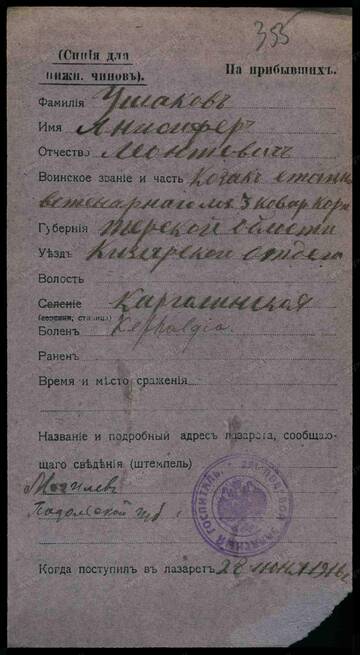 355
(Синія для
нижн. чиновъ).
На прибывшихъ.
Фамилія Ушаковъ
Имя Анисифер
Отчество Леонтевич
Воинское званіе и часть Козакъ етапн
ветенарнаго 3 кавар корп
Губернія терской области
Уѣздъ Кизлярской отдел
Волость
Селеніе Каргалинская
(деревня, станица)
Боленъ Kephalgia
Раненъ
Время и мѣсто сраженія
Названіе и подробный адресъ лазарета, сообщаю-
щаго свѣдѣнія (штемпель)
Могилев
Подольской губ
ЗАПАСНЫЙ ГОСПИТАЛЬ
Когда поступилъ въ лазаретъ 28 июня 1916 г